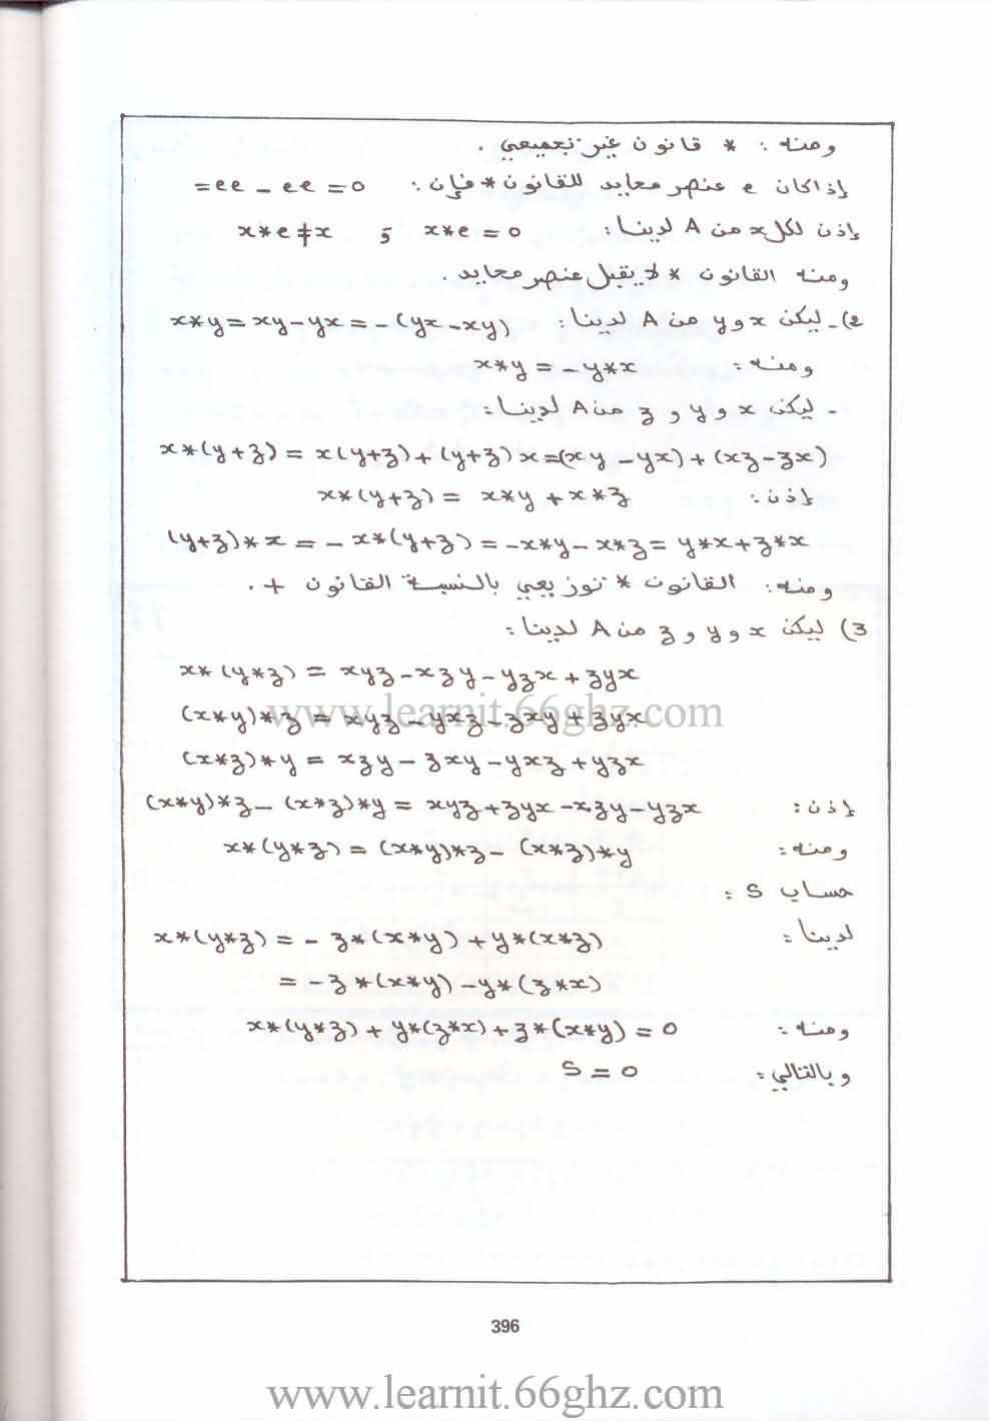 ومنه : * قانون غير تجميعي .
إذا كان e عنصر محايد للقانون * فإن : =ee - ee = 0
إذن لكل x من A لدينا : x*e = 0 و x*e ≠ x
ومنه القانون * لا يقبل عنصر محايد .
2)- ليكن x و y من A لدينا : x*y = xy - yx = -(yx - xy)
ومنه : x*y = - y*x
- ليكن x و y و z من A لدينا :
x*(y+z) = x(y+z) + (y+z)x = (xy - yx) + (xz - zx)
إذن : x*(y+z) = x*y + x*z
(y+z)*x = - x*(y+z) = -x*y - x*z = y*x + z*x
ومنه : القانون * توزيعي بالنسبة القانون + .
3) ليكن x و y و z من A لدينا :
x*(y*z) = xyz - xzy - yzx + zyx
(x*y)*z = xyz - yxz - zxy + zyx
www.learnit.66ghz.com
(x*z)*y = xzy - zxy - yxz + yzx
إذن : (x*y)*z - (x*z)*y = xyz + zyx - xzy - yzx
ومنه : x*(y*z) = (x*y)*z - (x*z)*y
حساب S :
لدينا : x*(y*z) = - z*(x*y) + y*(x*z)
= - z*(x*y) - y*(z*x)
ومنه : x*(y*z) + y*(z*x) + z*(x*y) = 0
وبالتالي : S = 0
396
www.learnit.66ghz.com